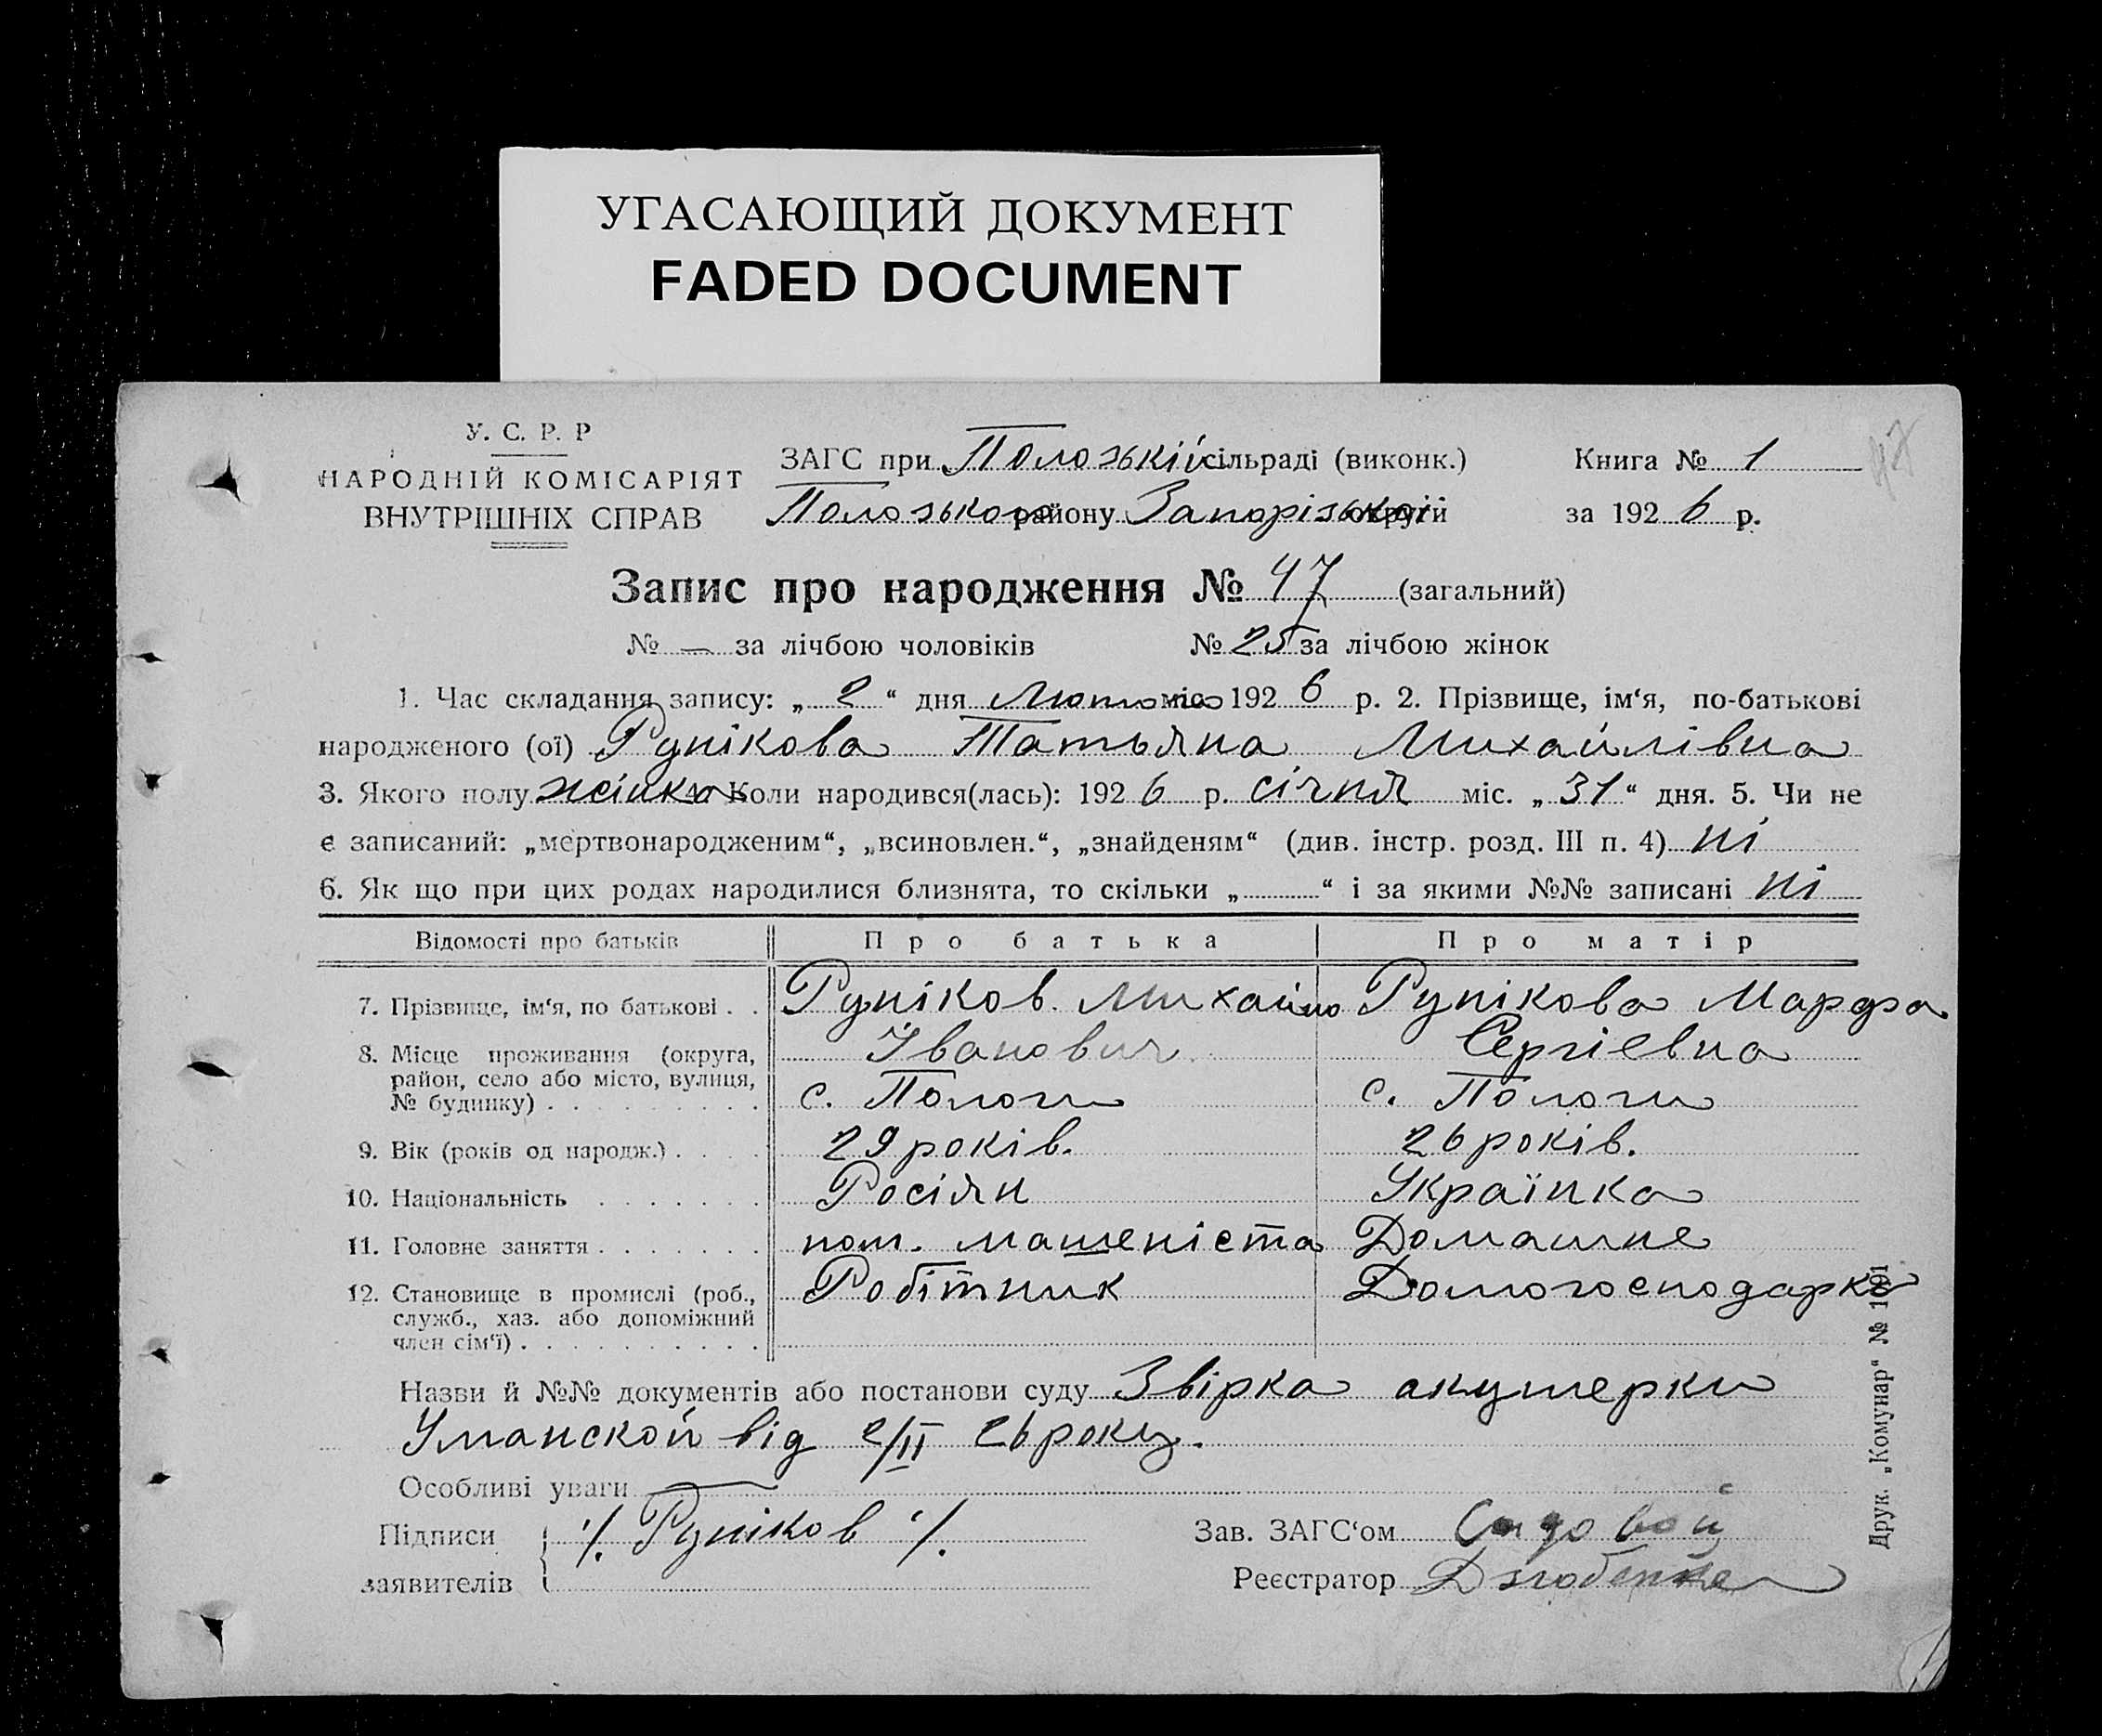 УГАСАЮЩИЙ ДОКУМЕНТ
FADED DOCUMENT
У. С. Р. Р
НАРОДНІЙ КОМІСАРІЯТ
ВНУТРІШНІХ СПРАВ
ЗАГС при Пологській сільраді (виконк.) Книга № 1
Пологського району Запорізької округи за 1926 р.
47
Запис про народження № 47 (загальний)
№ — за лічбою чоловіків № 25 за лічбою жінок
1. Час складання запису: „ 2 “ дня Лютого міс. 1926 р. 2. Прізвище, ім‘я, по-батькові
народженого (ої) Рунікова Татьяна Михайлівна
3. Якого полу жінка 4. Коли народився(лась): 1926 р. січня міс. „ 31 “ дня. 5. Чи не
є записаний: „мертвонародженим“, „всиновлен.“, „знайденям“ (див. інстр. розд. III п. 4) ні
6. Як що при цих родах народилися близнята, то скільки „ “ і за якими №№ записані ні
Відомості про батьків Про батька Про матір
7. Прізвище, ім‘я, по батькові . . Руніков Михайло Рунікова Марфа
Іванович Сергіевна
8. Місце проживання (округа,
район, село або місто, вулиця,
№ будинку) . . . . . . . . . с. Пологи с. Пологи
9. Вік (років од народж.) . . . . 29 років. 26 років.
10. Національність . . . . . . . Росіян Українка
11. Головне заняття . . . . . . . пом. машеніста Домашне
12. Становище в промислі (роб., Робітник Домогосподарка
служб., хаз. або допоміжний
член сім‘ї) . . . . . . . . . .
Назви й №№ документів або постанови суду Звірка акушерки
Уманской від 2/II 26 року.
Особливі уваги —
Підписи ·/. Руніков ·/. Зав. ЗАГС‘ом
заявителів Реєстратор
Друк. „Комунар“ № 1691